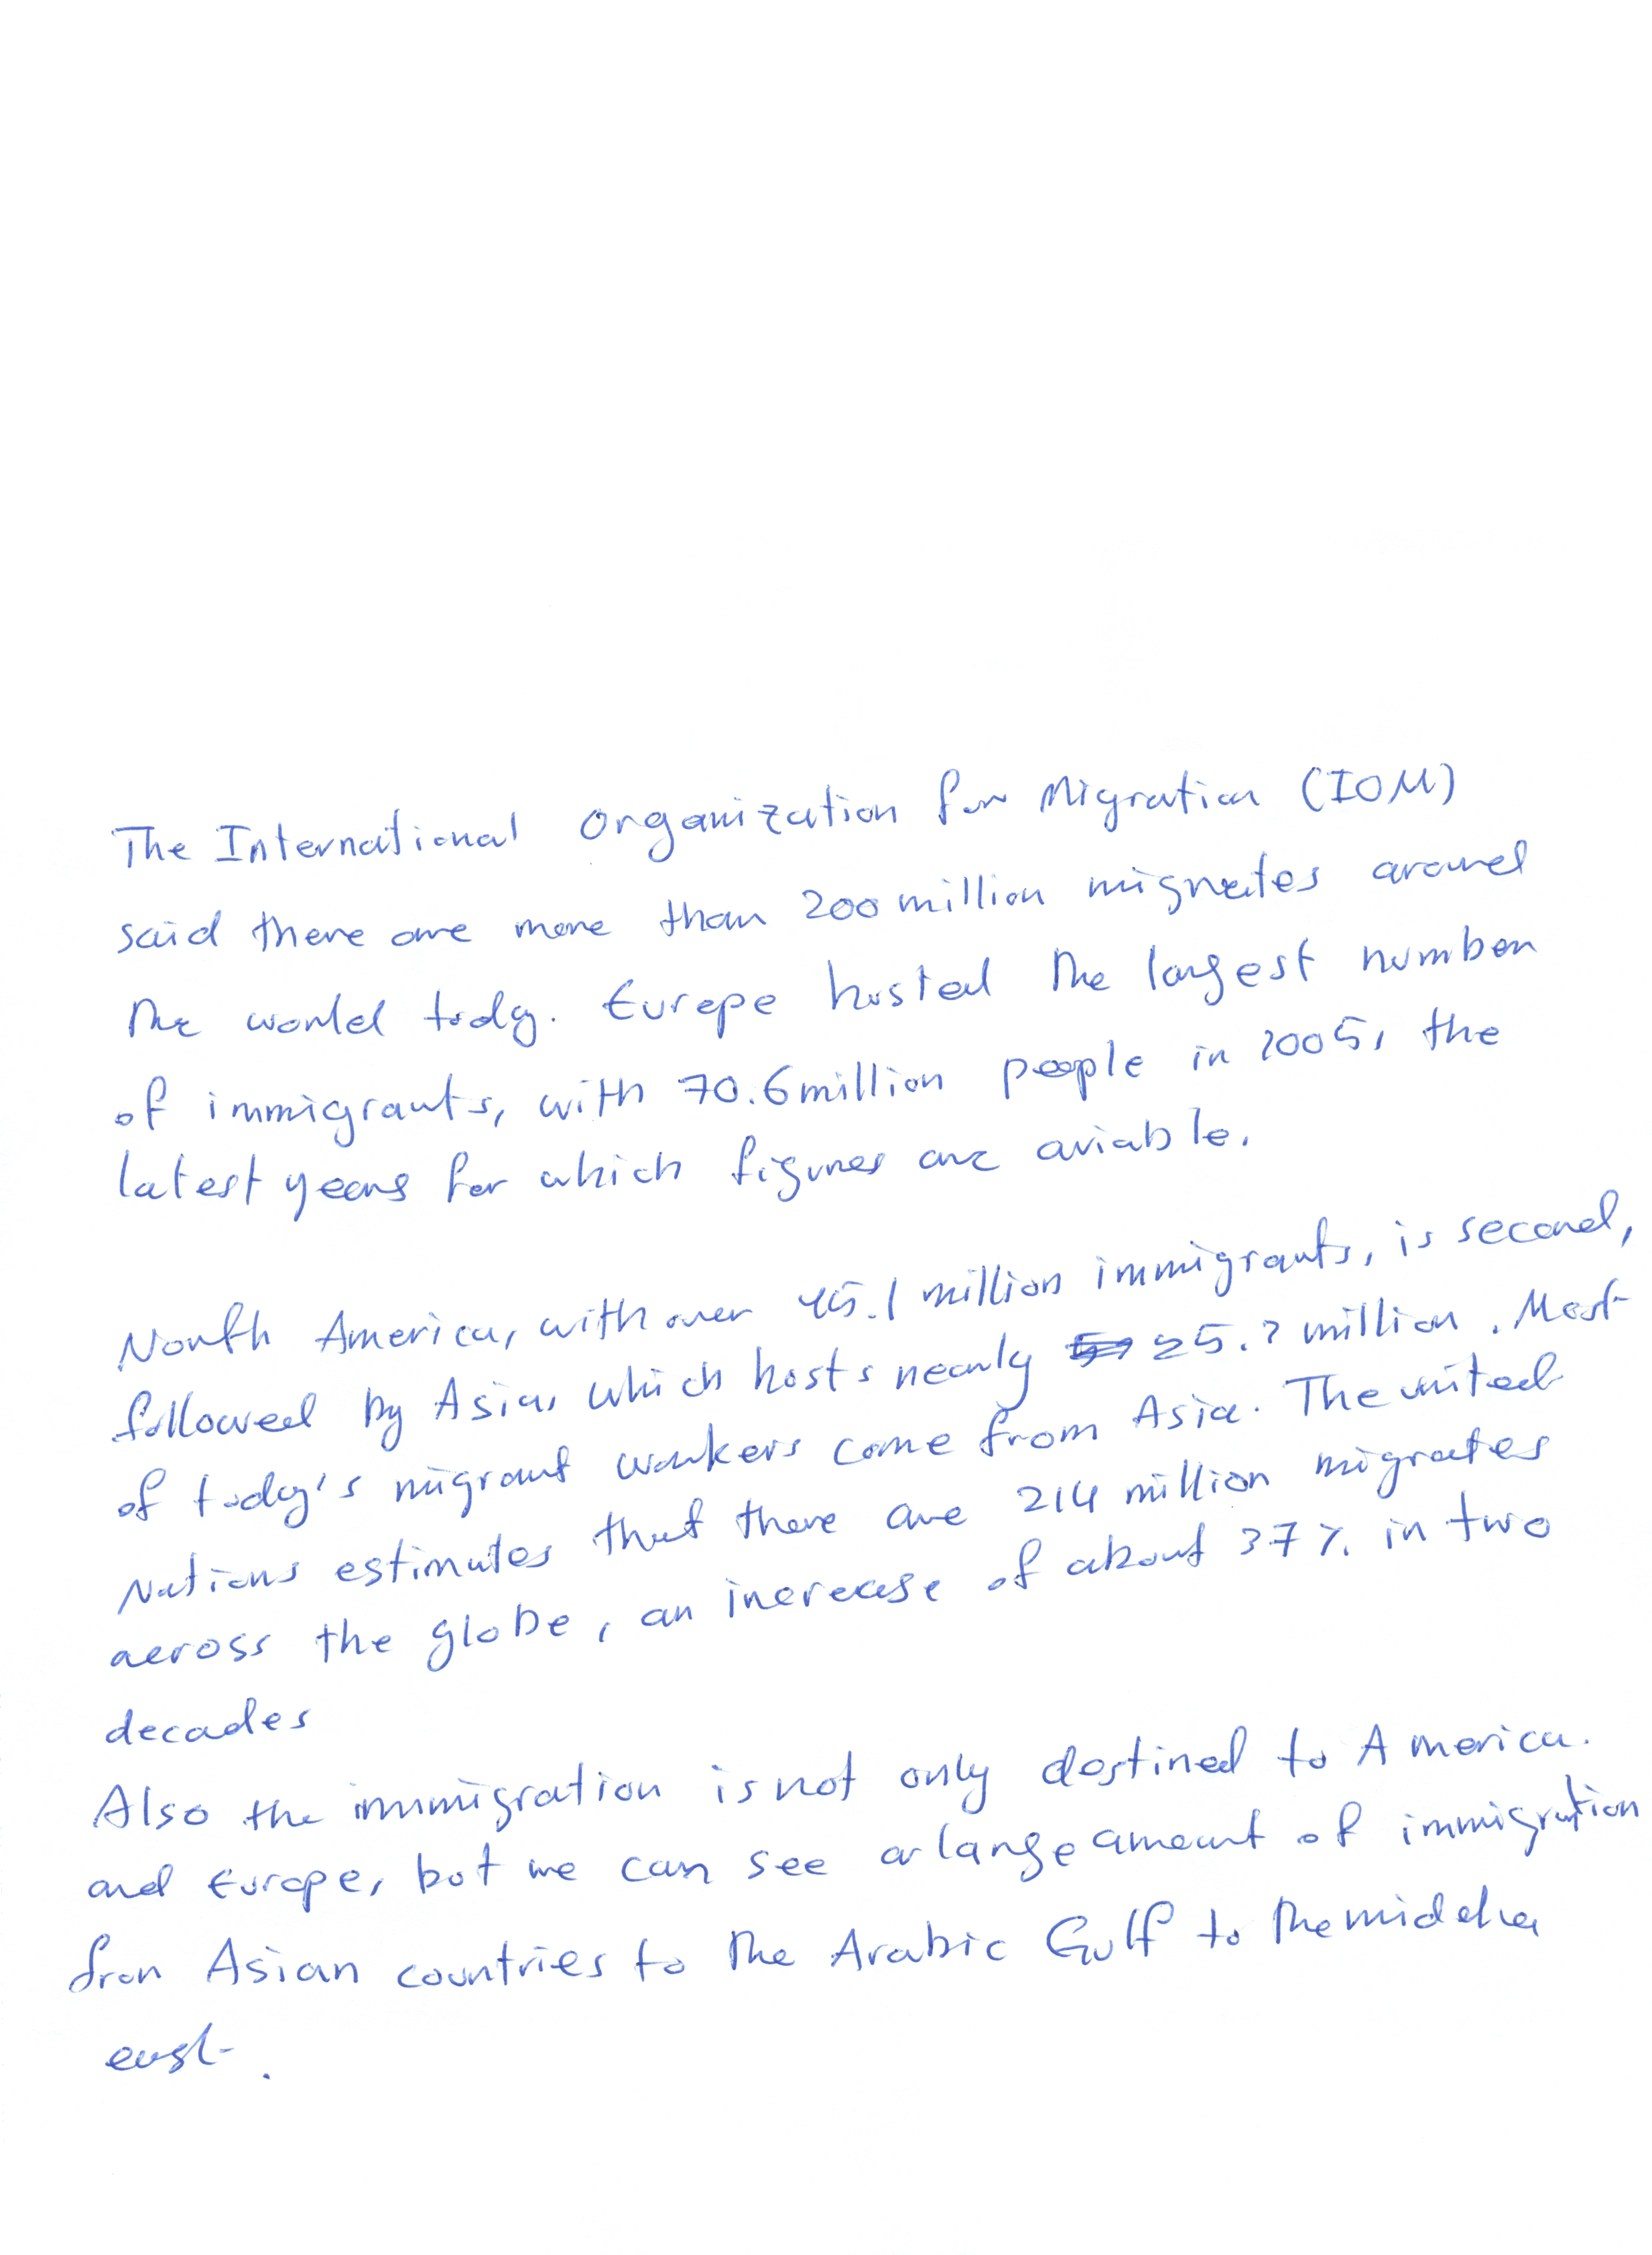 The International Organization for Migration (IOM)
said there are more than 200 million migrates around
the world today. Europe hosted the largest number
of immigrants, with 70.6 million people in 2005, the
latest years for which figures are aviable.
North America, with over 45.1 million immigrants, is second,
followed by Asia, which hosts nearly 25.? million. Most
of today's migrant workers come from Asia. The united
Nations estimates that there are 214 million migrates
across the globe, an increase of about 37% in two
decades
Also the immigration is not only destined to America.
and Europe, but we can see a large amount of immigration
from Asian countries to the Arabic Gulf to the middle
east.